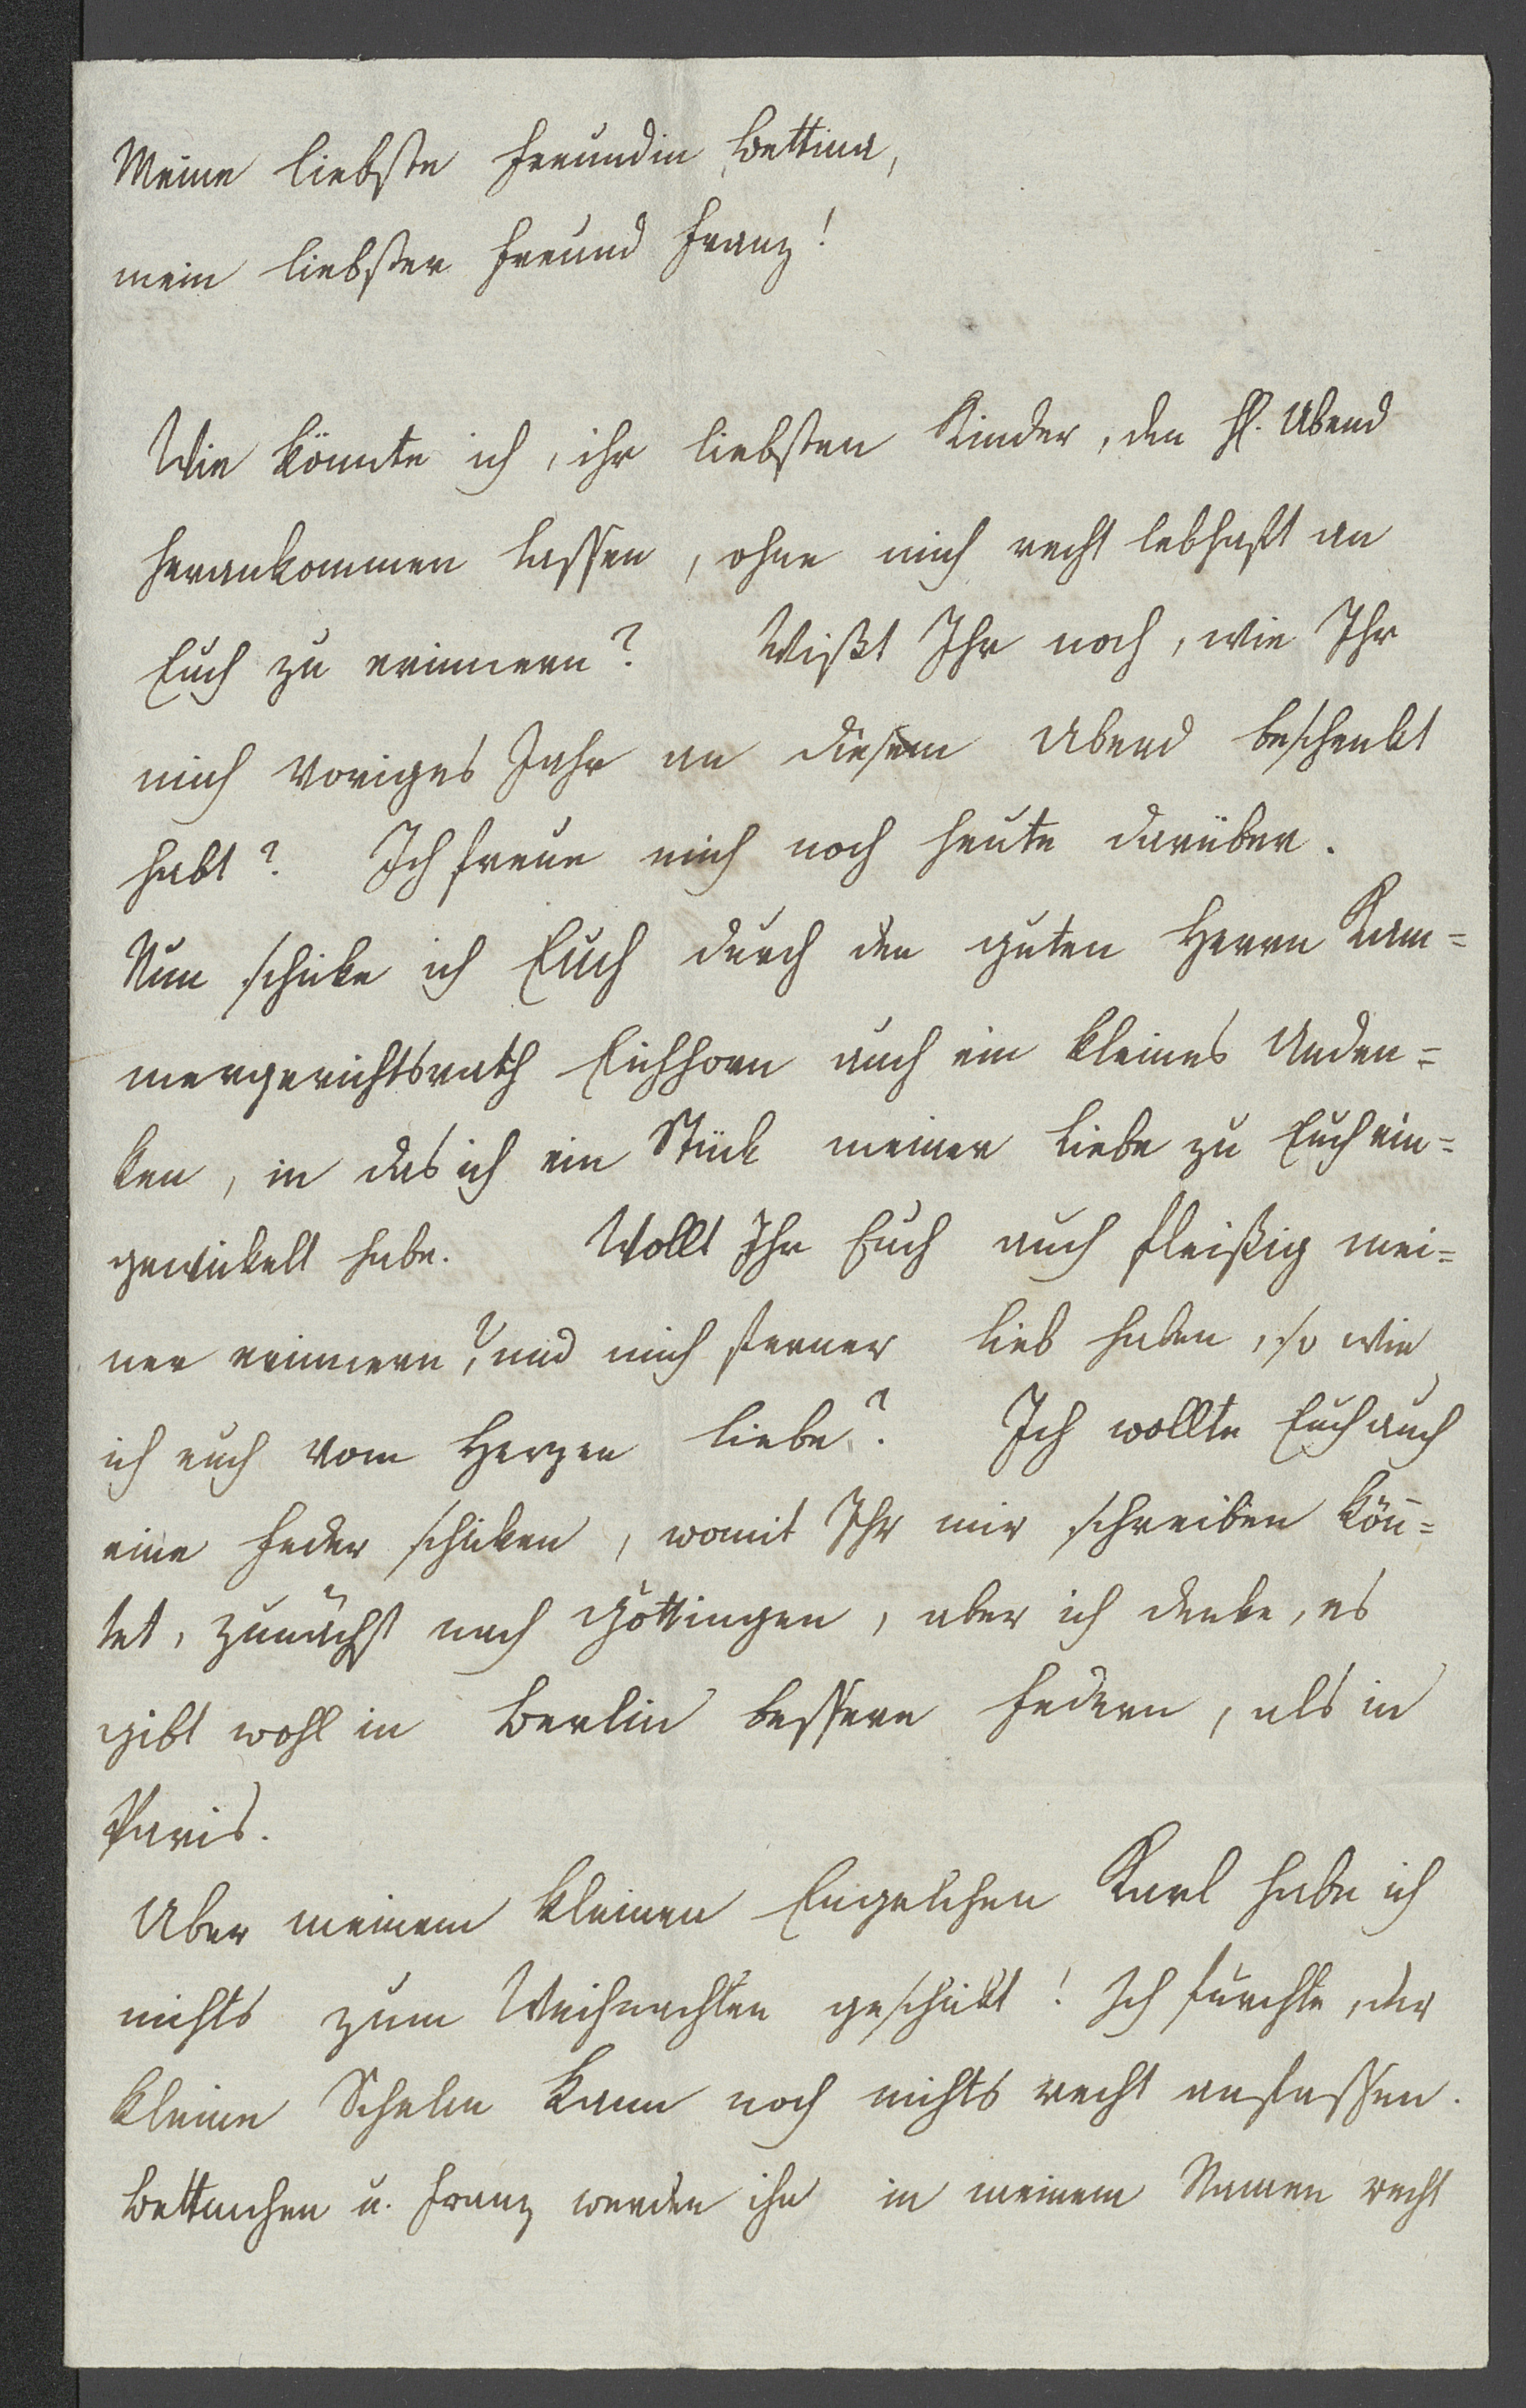 Meine liebste Freundin Bettina,
mein liebster Freund Franz!
Wie könnte ich, ihr liebsten Kinder, den hl. Abend
herankommen lassen, ohne mich recht lebhaft an
Euch zu erinnern? Wißt Ihr noch, wie Ihr
mich voriges Jahr an diesem Abend beschenkt
habt? Ich freue mich noch heute darüber.
Nun schicke ich Euch durch den guten Herrn Kam=
mergerichtsrath Eichhorn auch ein kleines Anden=
ken, in das ich ein Stück meiner Liebe zu Euch ein=
gewickelt habe. Wollt Ihr Euch auch fleißig mei=
ner erinnern? und mich ferner lieb haben, so wie
ich euch vom Herzen liebe? Ich wollte Euch auch
eine Feder schicken, womit Ihr mir schreiben kön̄=
tet, zunächst nach Göttingen, aber ich denke, es
gibt wohl in Berlin bessere Federn, als in
Paris.
Aber meinem kleinen Engelchen Karl habe ich
nichts zum Weihnachten geschickt! Ich fürchte, der
kleine Schelm kann noch nichts recht anfassen.
Bettinchen u. Franz werden ihn in meinem Namen recht